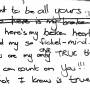 nt to be all yours
there is my broken
here's my broken heart
nd my so fickel-mind
ou are my only TRUE
can count on YOU !!!
hat I knew is true